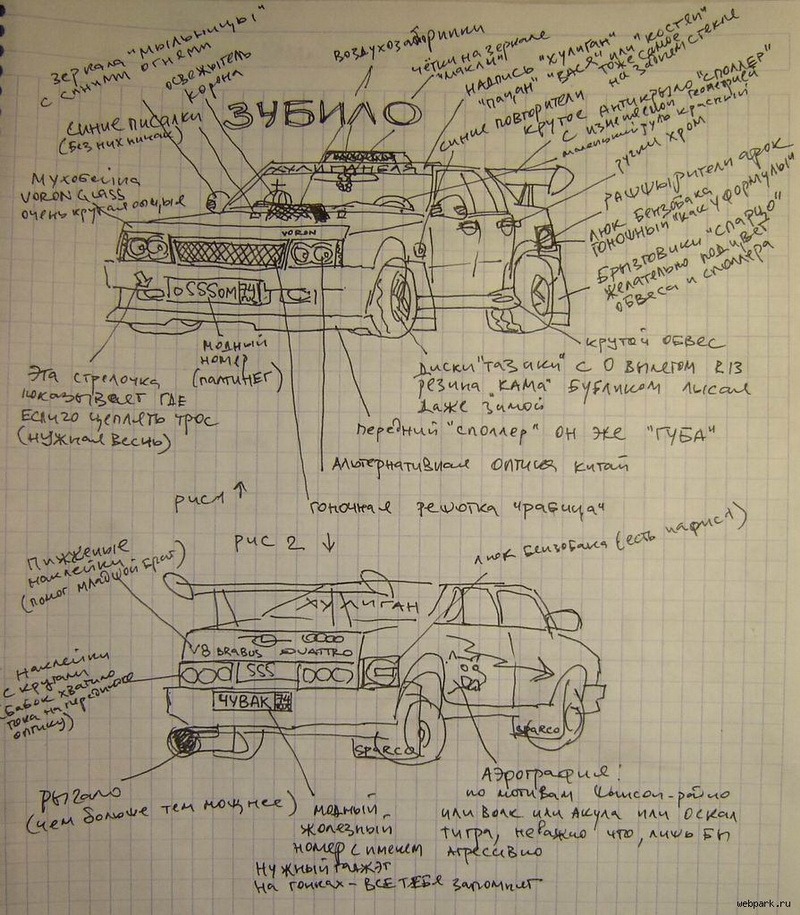 зеркала "мыльницы"
с синими огнями
освежитель
корона
воздухозаборники
чётки на зеркале
"макли"
надпись "хулиган"
"пацан" "вася" или "костян"
тоже самое
на заднем стекле
синие писалки
(без них никак)
ЗУБИЛО
синие повторители
крутое антикрыло "споллер"
с изменяемой геометрией
маленький руль красный
ручки хром
Мухобейка
VORON GLASS
очень крутая вощые
расшырители арок
люк бензобака
гоночный "как у формулы"
брызговики "спарцо"
желательно под цвет
обвеса и споллера
VORON
OSSSOM 74
модный
номер
(палтинег)
Эта стрелочка
показывает где
Если го цеплять трос
(нужная весчь)
крутой обвес
Диски "тазики" с 0 вылетом R13
резина "КАМА" бубликом лысая
даже зимой
передний "споллер" он же "ГУБА"
Альтернативная оптика китай
гоночная решотка "рабица"
рис 1 ↑
рис 2 ↓
люк бензобака (есть нафиса)
Пижженые
наклейки
(помог младшой брат)
ХУЛИГАН
V8 BRABUS QUATTRO
SSS
ЧУВАК 74
наклейки
с кругами
(бабок хватило
тока на переднюю
оптику)
SPARCO
SPARCO
рыгало
(чем больше тем мощнее)
модный
жолезный
номер с именем
Нужный гаджэт
на гонках - ВСЕ ТЕБЯ запомнет
Аэрография!
по мотивам
или волк или Акула или Оскал
тигра, неважно что, лишь бы
агрессивно
webpark.ru